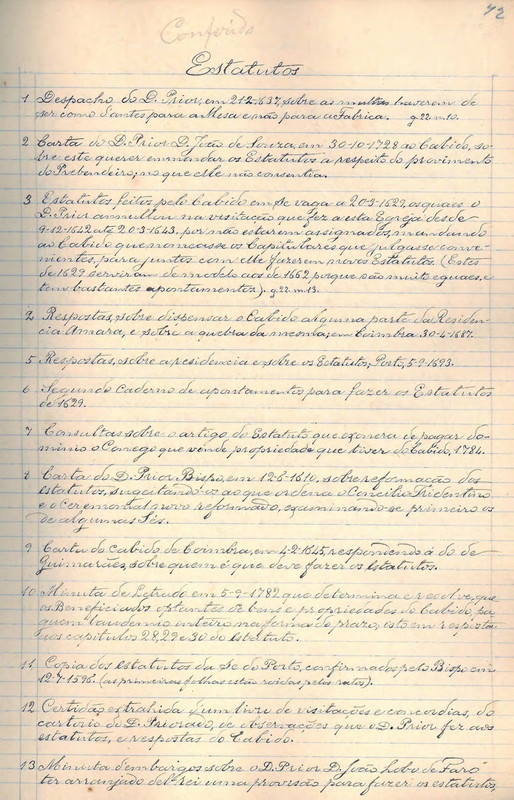 72
Conferido
Estatutos
1 Despacho do D. Prior, em 21-2-1637, sobre as multas haverem de
ser como d'antes para a Mesa e não para a Fabrica. g 22. m. 10.
2 Carta do D. Prior D. João de Souza, em 30-10-1728 ao Cabido, so-
bre este querer emmendar os Estatutos a respeito do provimento
do Prebendeiro; no que elle não consentia.
3 Estatutos feitos pelo Cabido em Se vaga a 20-3-1629, os quaes o
D. Prior annullou na visitação que fez a esta Egreja desde
9-12-1642 até 20-3-1643, por não estarem assignados, mandando
ao Cabido que nomeasse os Capitulares que julgasse conve-
nientes, para juntos com elle fazerem novos Estatutos. (Estes
de 1629 serviram de modelo aos de 1662 porque são muito eguaes, e
tem bastantes apontamentos). g. 22. m. 13.
2 Respostas, sobre dispensar o Cabido alguma parte da Residen-
cia Amara, e sobre a quebra da mesma, em Coimbra 30-4-1687.
5 Respostas, sobre a residencia e sobre os Estatutos, Porto, 5-9-1693.
6 Segundo caderno de apontamentos para fazer os Estatutos
de 1629.
7 Consultas sobre o artigo do Estatuto que exonera de pagar do-
minio o Conego que vende propriedade que tiver do Cabido, 1784.
8 Carta do D. Prior Bispo, em 12-6-1610, sobre reformação dos
estatutos, sugeitando-os ao que ordena o Concilio Tridentino
e o Ceremonial novo reformado, examinando-se primeiro os
de algumas Sés.
9 Carta do Cabido de Coimbra, em 4-2-1645, respondendo á do de
Guimarães, sobre quem é que deve fazer os estatutos.
10 Minuta de Letrado em 5-9-1782 que determina e resolve, que
os Beneficiados optantes de bens e propriedades do Cabido, pa-
guem laudemio inteiro na forma do prazo, isto em resposta
aos capitulos 28, 29 e 30 do estatuto.
11 Copia dos estatutos da Se do Porto, confirmados pelo Bispo em
12-7-1596. (as primeiras folhas estão roidas pelos ratos).
12 Certidão extrahida d'um livro de visitações e concordias, do
cartorio do D. Priorado, de observações que o D. Prior fez aos
estatutos, e respostas do Cabido.
13 Minuta d'embargos sobre o D. Prior D. João Lobo de Faro
ter arranjado del-rei uma provisão para fazer os estatutos,